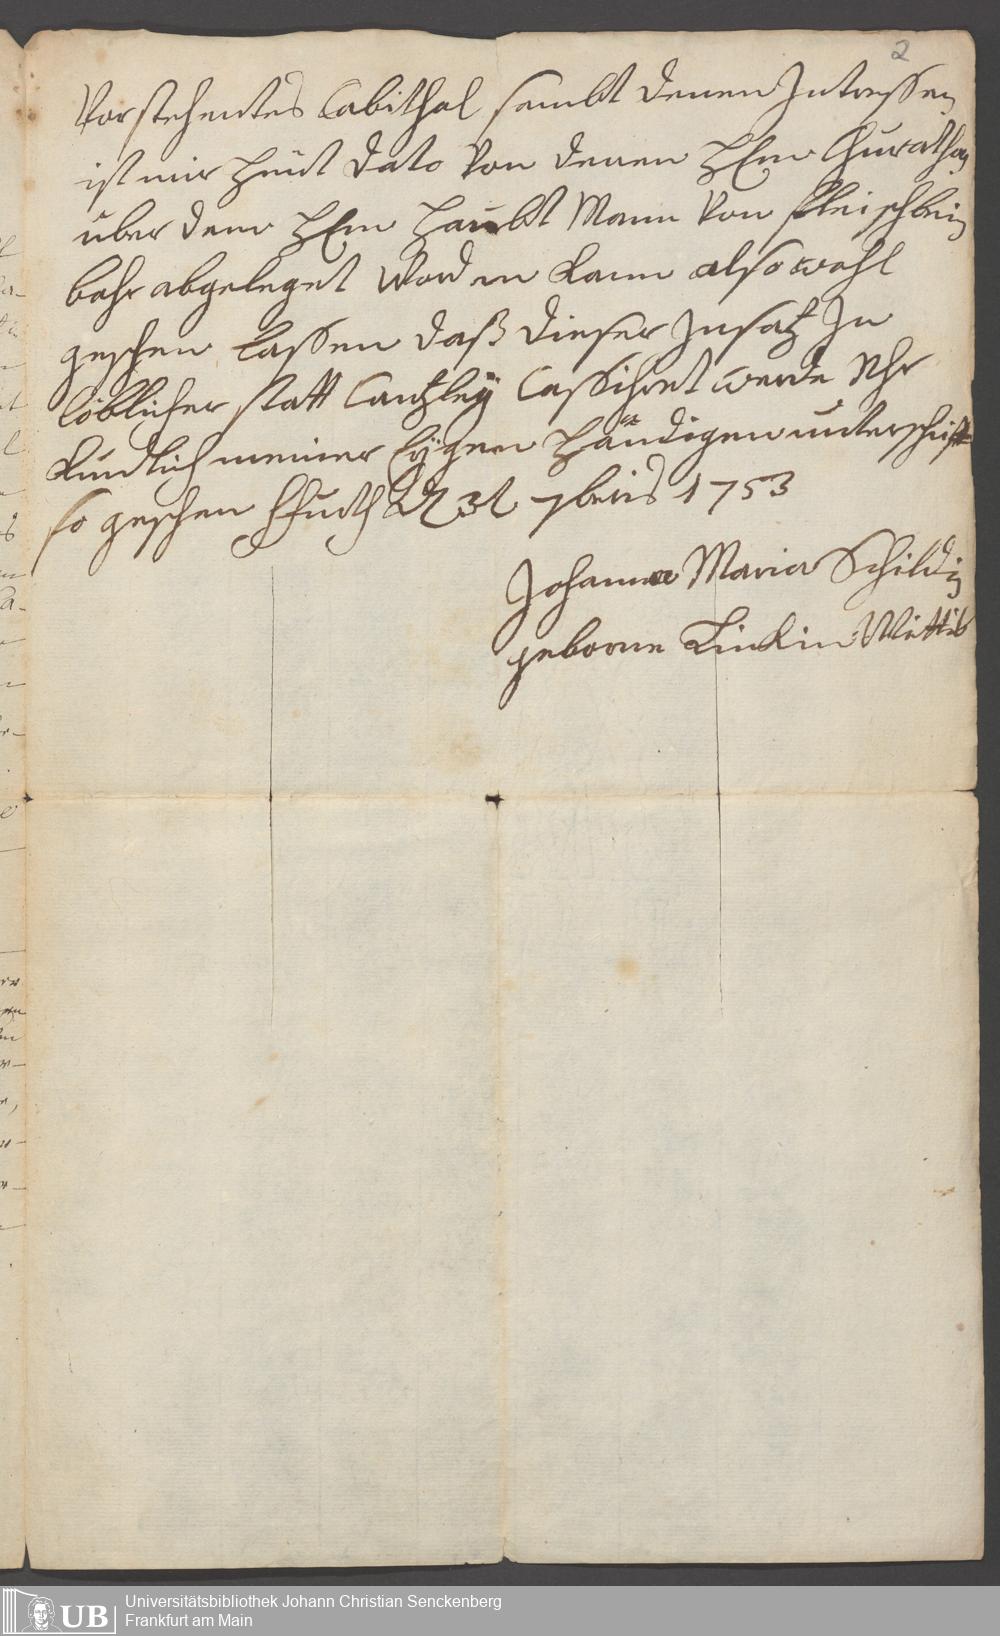 2
Vorstehentes Cabithal sambt denen Intressen
ist mir heut dato von denen HErrn Curathor
uber denn HErrn Haubt Mann von Fleischbein
bahr abgeleget worden kann also wohl
geschen lassen daß dieser Insatz In
löblicher statt Cantzley Cassihret werde Uhr
kundlich meiner Eÿgen händigen unterschrifft
so geschen 7bris 1753
Johanna Maria Schildin
geborne Linckin Wittib
UB
Universitätsbibliothek Johann Christian Senckenberg
Frankfurt am Main